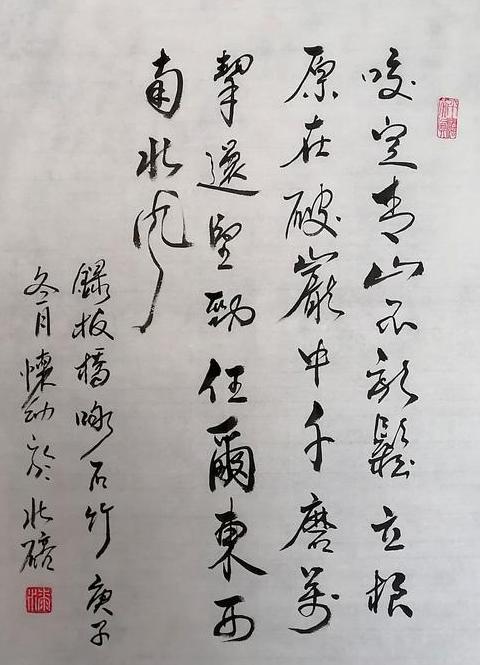 咬定青山不放鬆立根
原在破巖中千磨萬
擊還堅勁任爾東西
南北風
錄板橋咏石竹 庚子
冬月懷幼於北碚